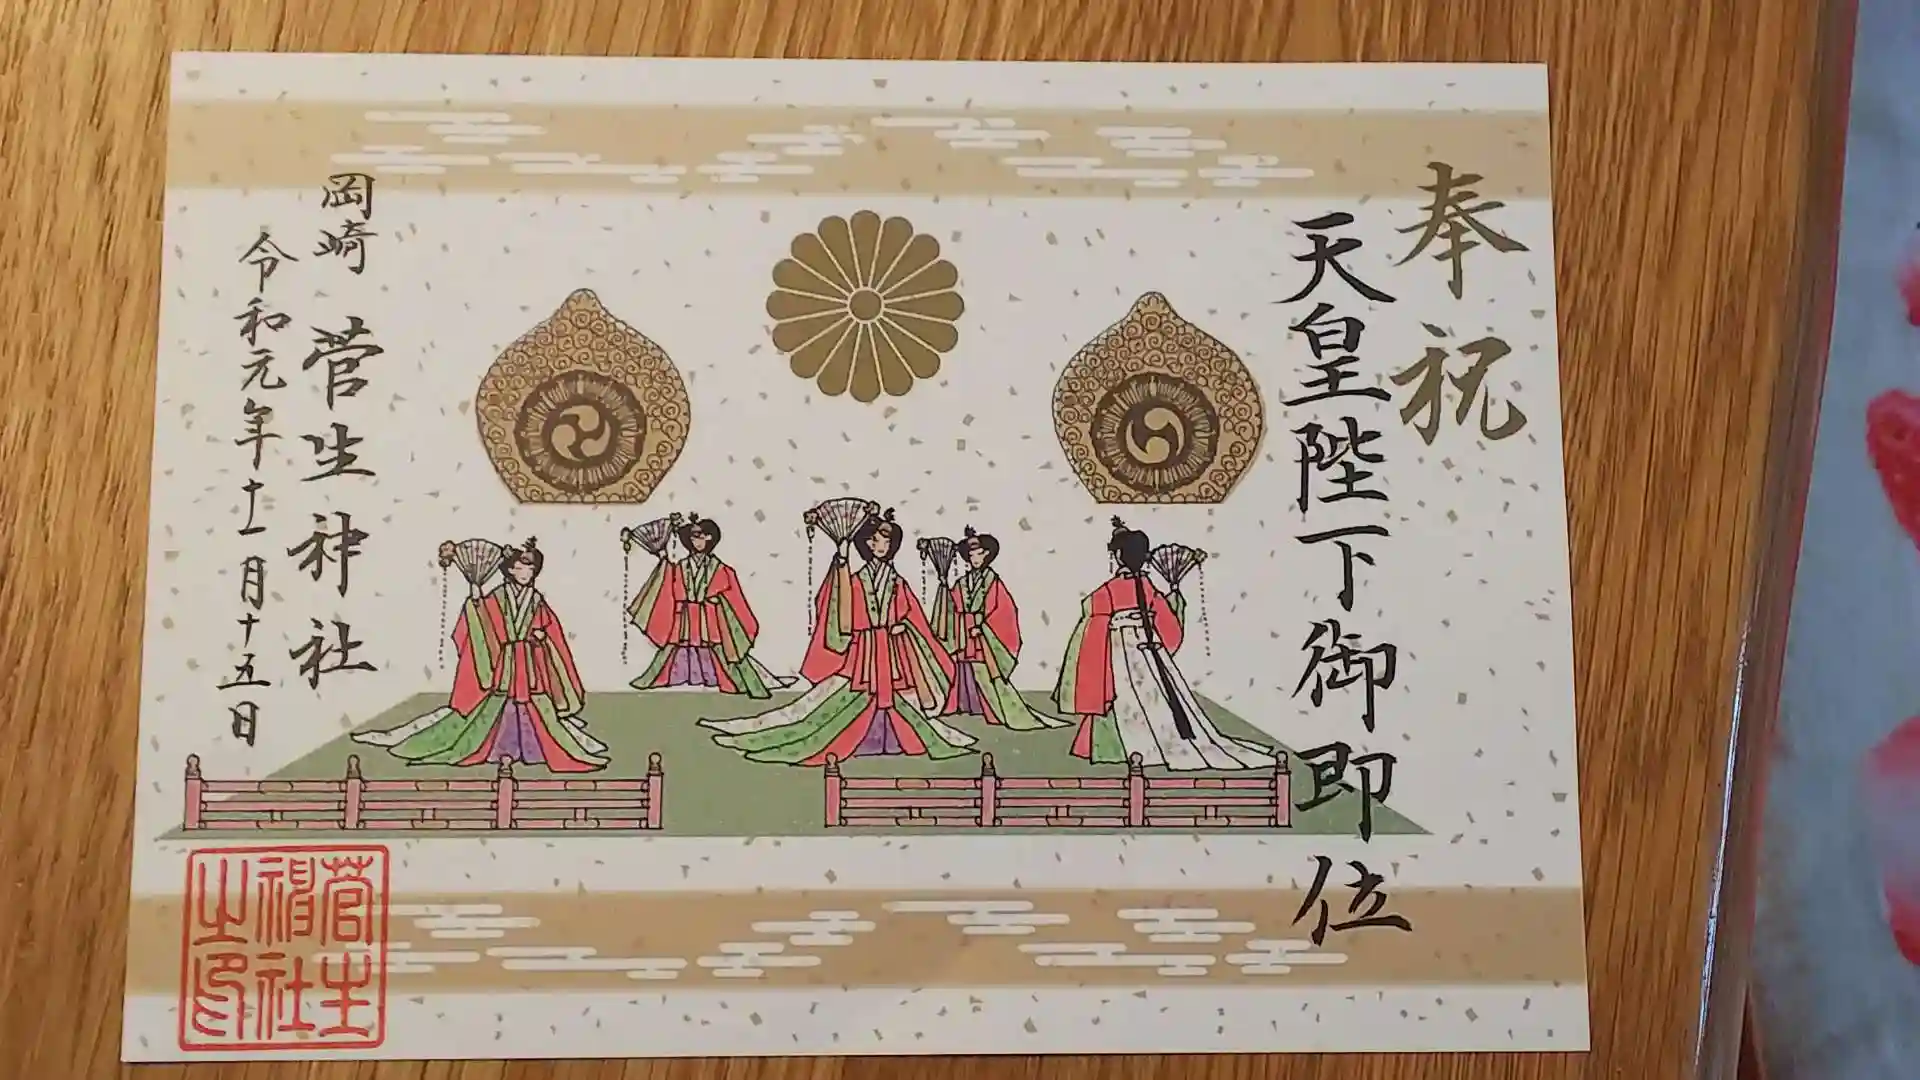 奉祝
天皇陛下御即位
岡崎 菅生神社
令和元年十一月十五日
菅生
神社
之印